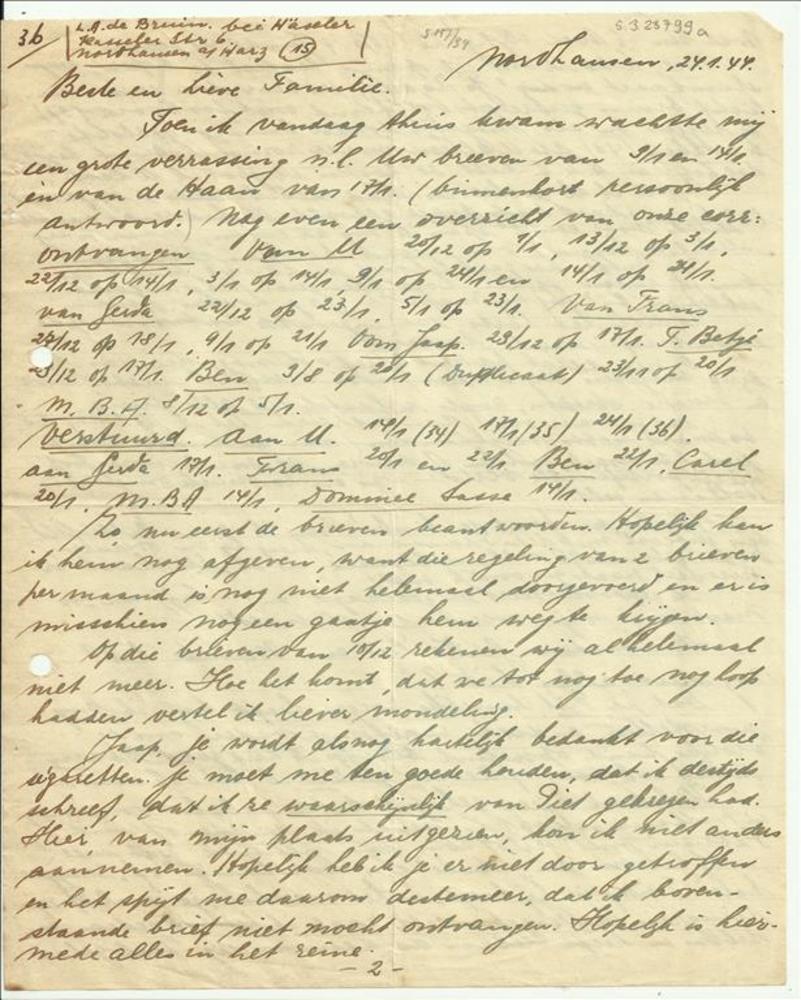 36 L.A. de Bruin. bei Häseler
Kasseler Str 6
Nordhausen a/Harz (15)
S 3 25799a
Nordhausen, 24.1.44.
Beste en Lieve Familie.
Toen ik vandaag thuis kwam wachtte mij
een grote verrassing n.l. Uw brieven van 9/1 en 14/1
en van de Haan van 17/1. (binnenkort persoonlijk
antwoord.) Nog even een overzicht van onze corr:
ontvangen van U 20/12 op 7/1, 13/12 op 3/1,
22/12 op 14/1, 3/1 op 14/1, 9/1 op 24/1 en 14/1 op 24/1.
van Gerda 22/12 op 23/1, 5/1 op 23/1. Van Frans
27/12 op 18/1, 9/1 op 21/1 Oom Jaap. 29/12 op 17/1. T. Betje
/12 op 17/1. Ben 3/8 op 20/1 (Duplicaat) 23/11 op 20/1
M.B.A. 8/12 op 5/1.
Verstuurd. aan U. 14/1 (34) 17/1 (35) 24/1 (36).
aan Gerda 17/1. Frans 20/1 en 22/1 Ben 22/1, Carel
20/1. M.BA 14/1, Dominee Sasse 14/1.
Zo nu eerst de brieven beantwoorden. Hopelijk kan
ik hem nog afgeven, want die regeling van 2 brieven
per maand is nog niet helemaal doorgevoerd en er is
misschien nog een gaatje hem weg te krijgen.
Op die brieven van 10/12 rekenen wij al helemaal
niet meer. Hoe het komt, dat we tot nog toe nog hoop
hadden vertel ik liever mondeling.
Jaap, je wordt alsnog hartelijk bedankt voor die
sigaretten. Je moet me ten goede houden, dat ik destijds
schreef, dat ik ze waarschijnlijk van Piet gekregen had.
Hier, van mijn plaats uitgezien, kon ik niet anders
aannemen. Hopelijk heb ik je er niet door getroffen
en het spijt me daarom destemeer, dat ik boven-
staande brief niet mocht ontvangen. Hopelijk is hier-
mede alles in het reine.
- 2 -